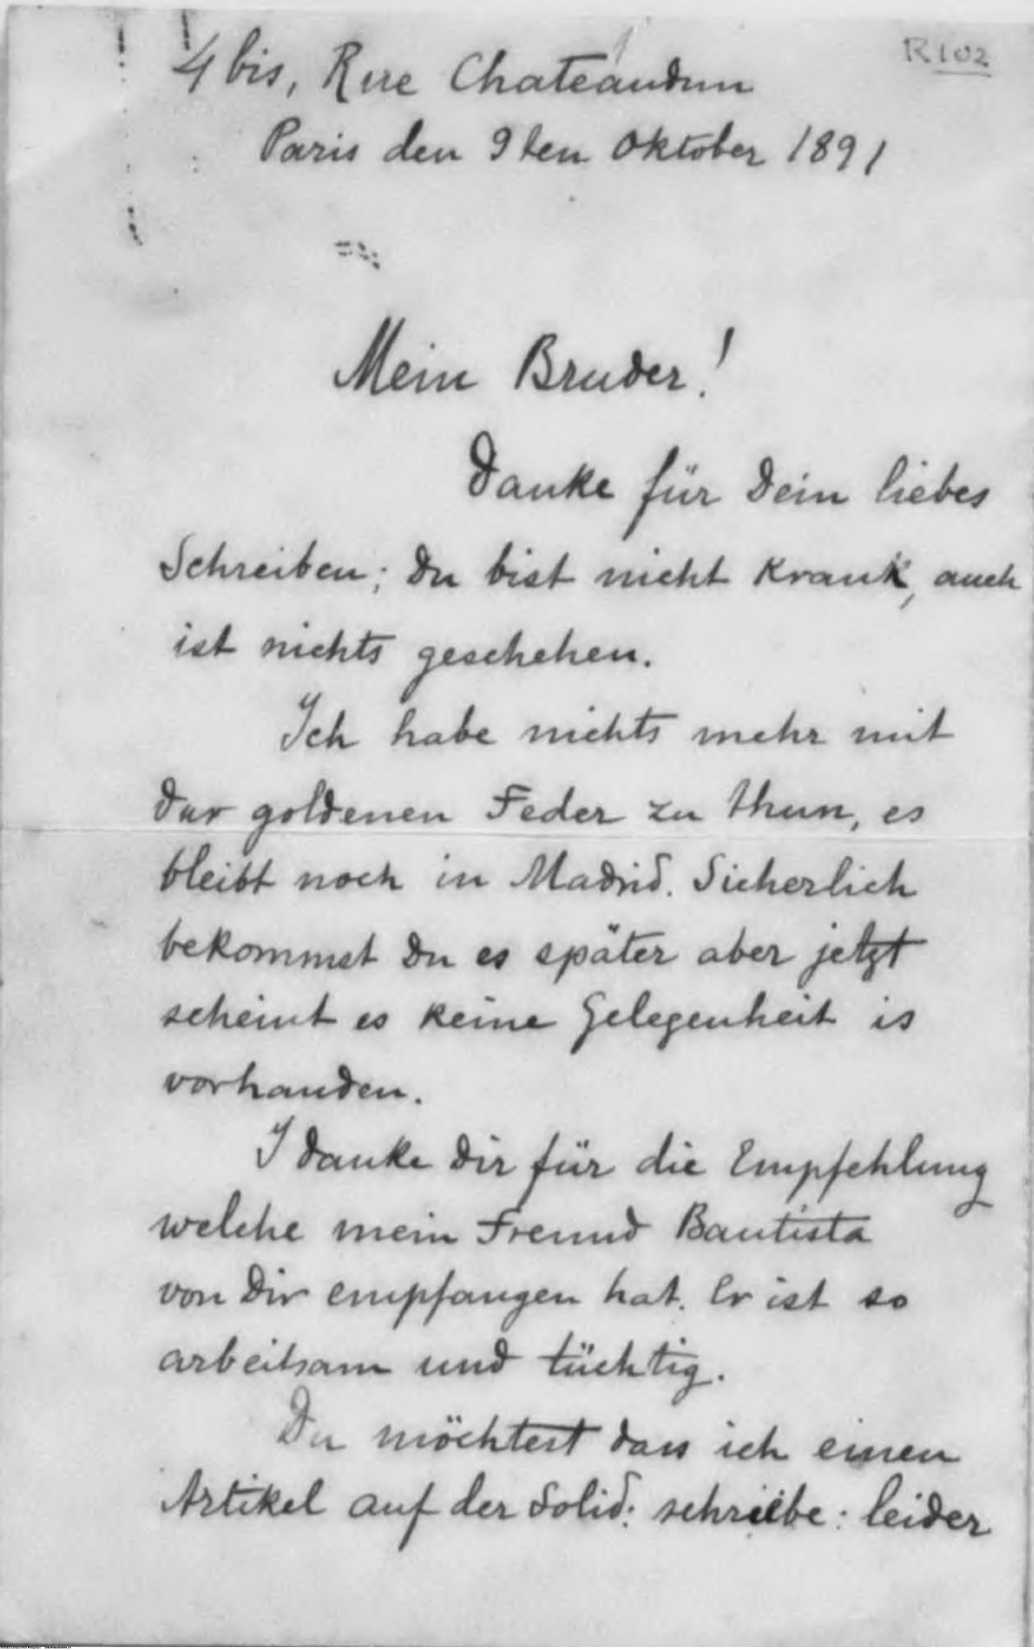 R102
4 bis, Rue Chateaudun
Paris den 9ten Oktober 1891
Mein Bruder!
Danke für Dein liebes
Schreiben; Du bist nicht Krank, auch
ist nichts geschehen.
Ich habe nichts mehr mit
der goldenen Feder zu thun, es
bleibt noch in Madrid. Sicherlich
bekommst Du es später aber jetzt
scheint es keine Gelegenheit is
vorhanden.
I danke Dir für die Empfehlung
welche mein Freund Bautista
von Dir empfangen hat. Er ist so
arbeitsam und tüchtig.
Du möchtest dass ich einen
Artikel auf der Solid: schreibe: leider